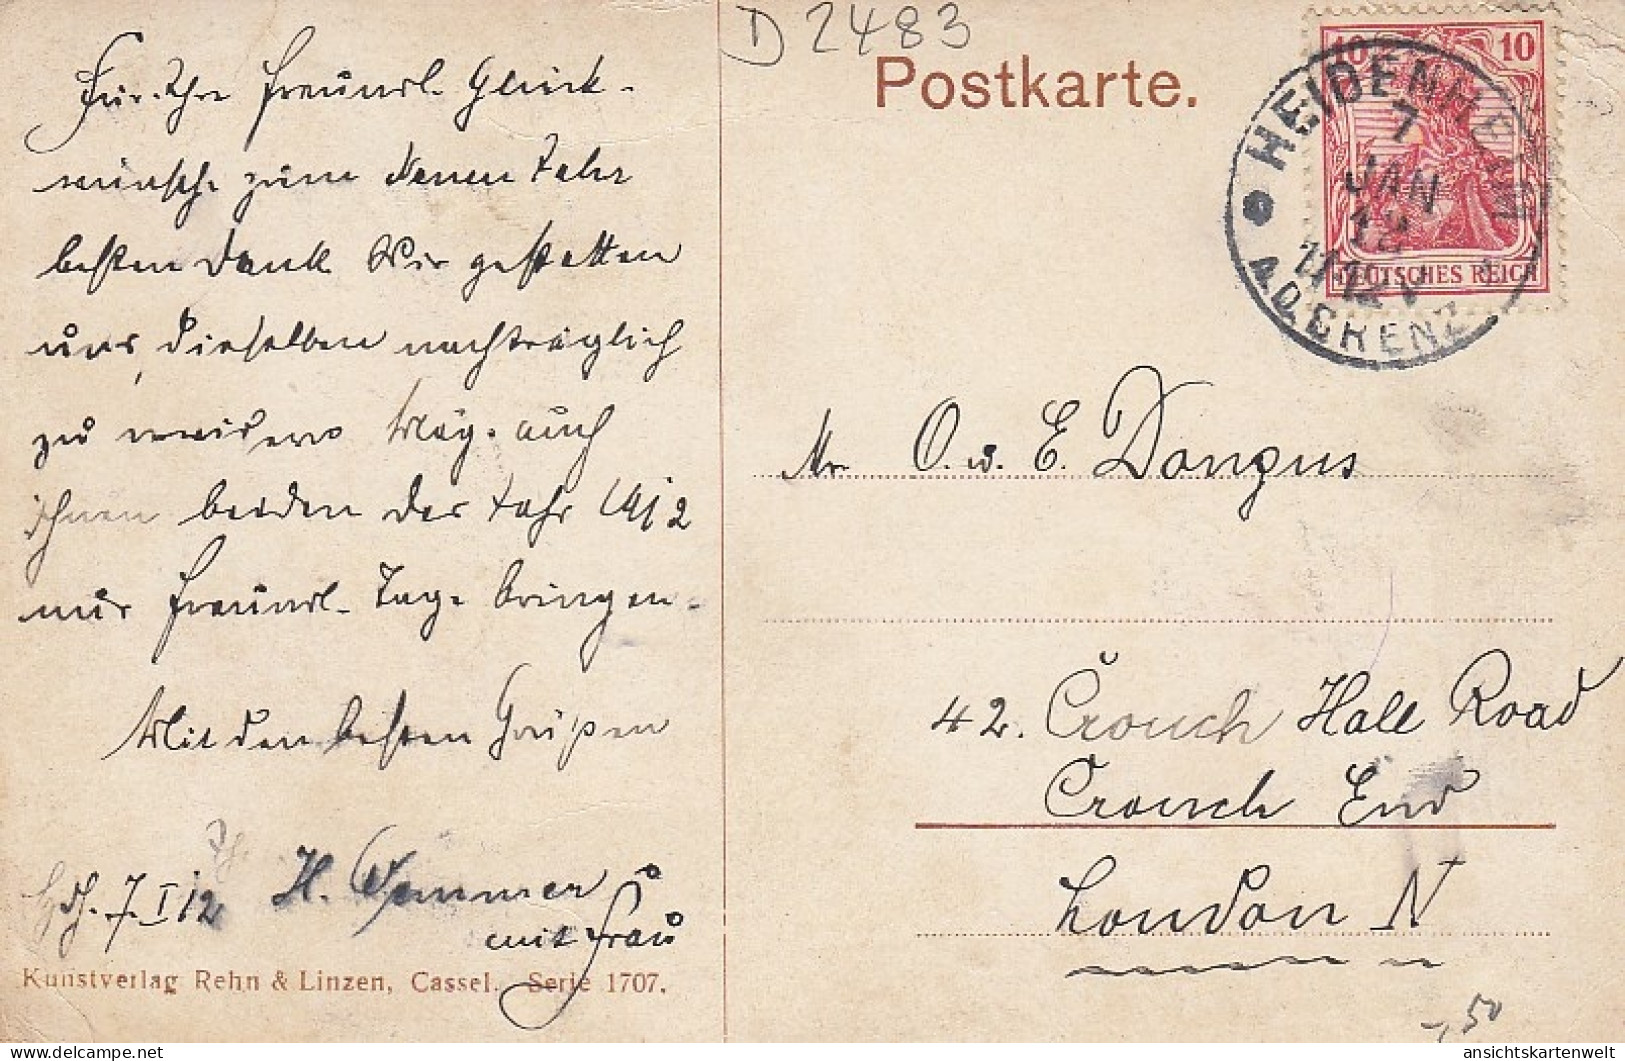 D 2483
Postkarte.
10 10
DEUTSCHES REICH
HEIDENHEIM
7
JAN
12
11-12 V
A.D. BRENZ
Für Ihre freundl. Glück-
wünsche zum Neuen Jahr
besten Dank. Wir gestatten
uns, dieselben nachträglich
zu erwidern. Mög. auch
Ihnen beiden das Jahr 1912
nur freundl. Tage bringen.
Mit den besten Grüßen
Hdh. 7. I 12 H.
mit Frau
Kunstverlag Rehn & Linzen, Cassel. Serie 1707.
Mr. O. u. E. Dongus
42. Crouch Hall Road
Crouch End
London N
-,50
ansichtskartenwelt
delcampe.net